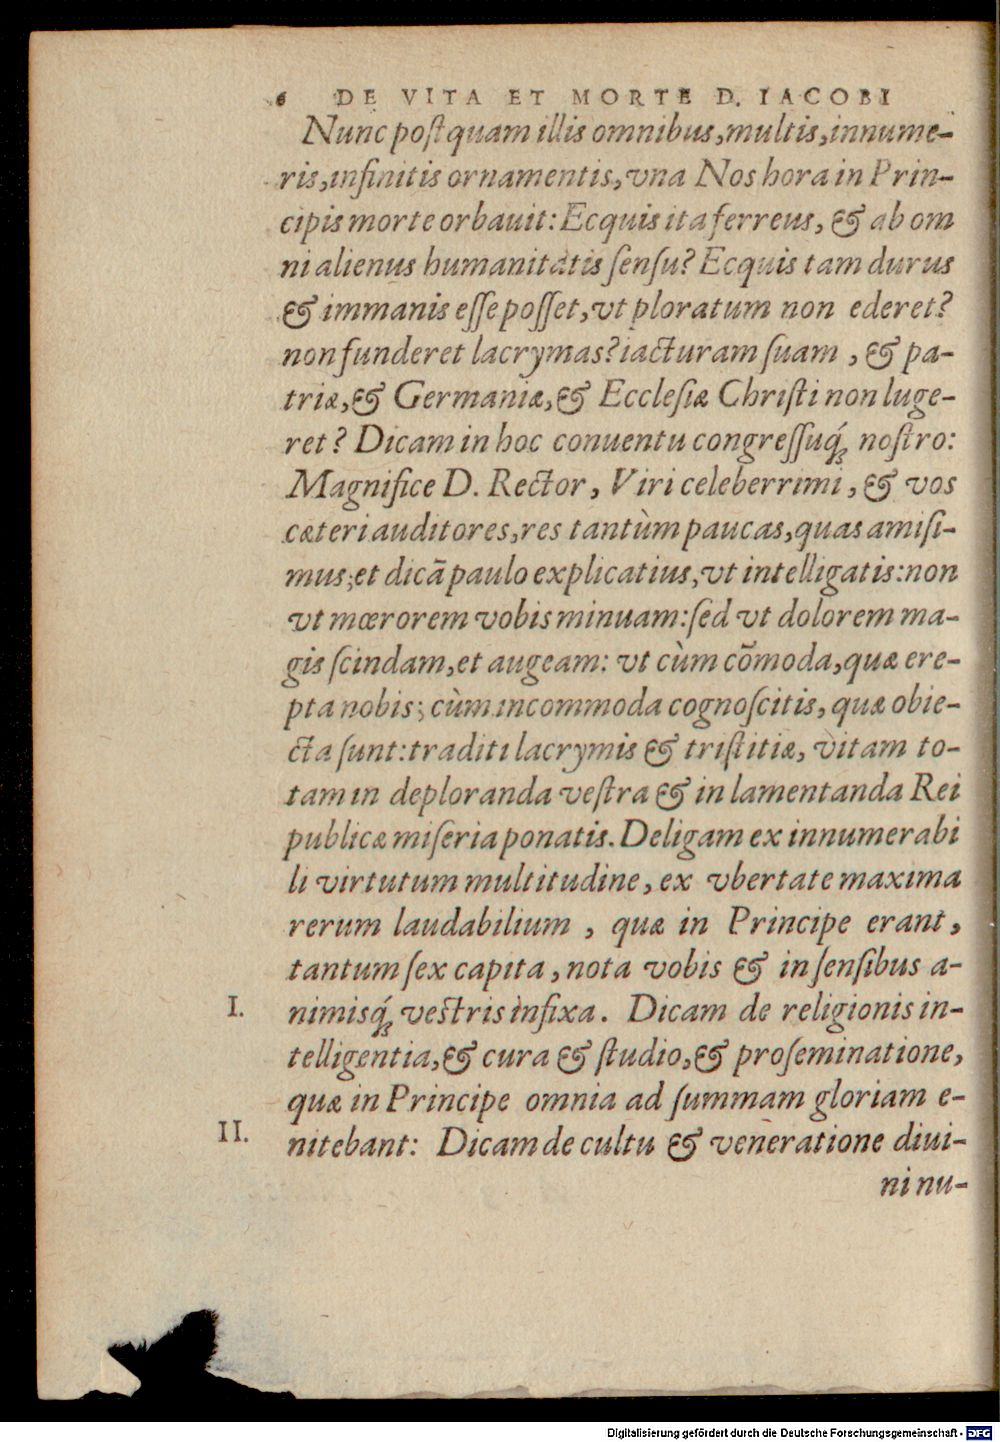 6 DE VITA ET MORTE D. IACOBI
Nunc postquam illis omnibus, multis, innume-
ris, infinitis ornamentis, vna Nos hora in Prin-
cipis morte orbauit: Ecquis ita ferreus, & ab om
ni alienus humanitatis sensu? Ecquis tam durus
& immanis esse posset, vt ploratum non ederet?
non funderet lacrymas? iacturam suam, & pa-
triæ, & Germaniæ, & Ecclesiæ Christi non luge-
ret? Dicam in hoc conuentu congressuq́; nostro:
Magnifice D. Rector, Viri celeberrimi, & vos
cæteri auditores, res tantùm paucas, quas amisi-
mus; et dicā paulo explicatius, vt intelligatis: non
vt mœrorem vobis minuam: sed vt dolorem ma-
gis scindam, et augeam: vt cùm cōmoda, quæ ere-
pta nobis; cùm incommoda cognoscitis, quæ obie-
cta sunt: traditi lacrymis & tristitiæ, vitam to-
tam in deploranda vestra & in lamentanda Rei
publicæ miseria ponatis. Deligam ex innumerabi
li virtutum multitudine, ex vbertate maxima
rerum laudabilium, quæ in Principe erant,
tantum sex capita, nota vobis & in sensibus a-
I. nimisq́; vestris infixa. Dicam de religionis in-
telligentia, & cura & studio, & proseminatione,
quæ in Principe omnia ad summam gloriam e-
II. nitebant: Dicam de cultu & veneratione diui-
ni nu-
Digitalisierung gefördert durch die Deutsche Forschungsgemeinschaft - DFG